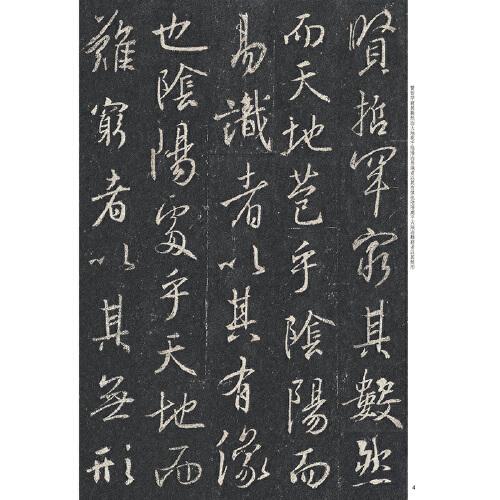 賢哲罕窮其數然
而天地苞乎陰陽而
易識者以其有像
也陰陽處乎天地而
難窮者以其無形
4